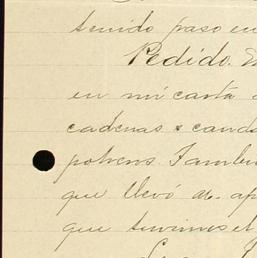 tenido paso en
Pedido. E
en mi carta
cadenas & canda
potreros. Tambie
que llevó de ap
que tuvimos el